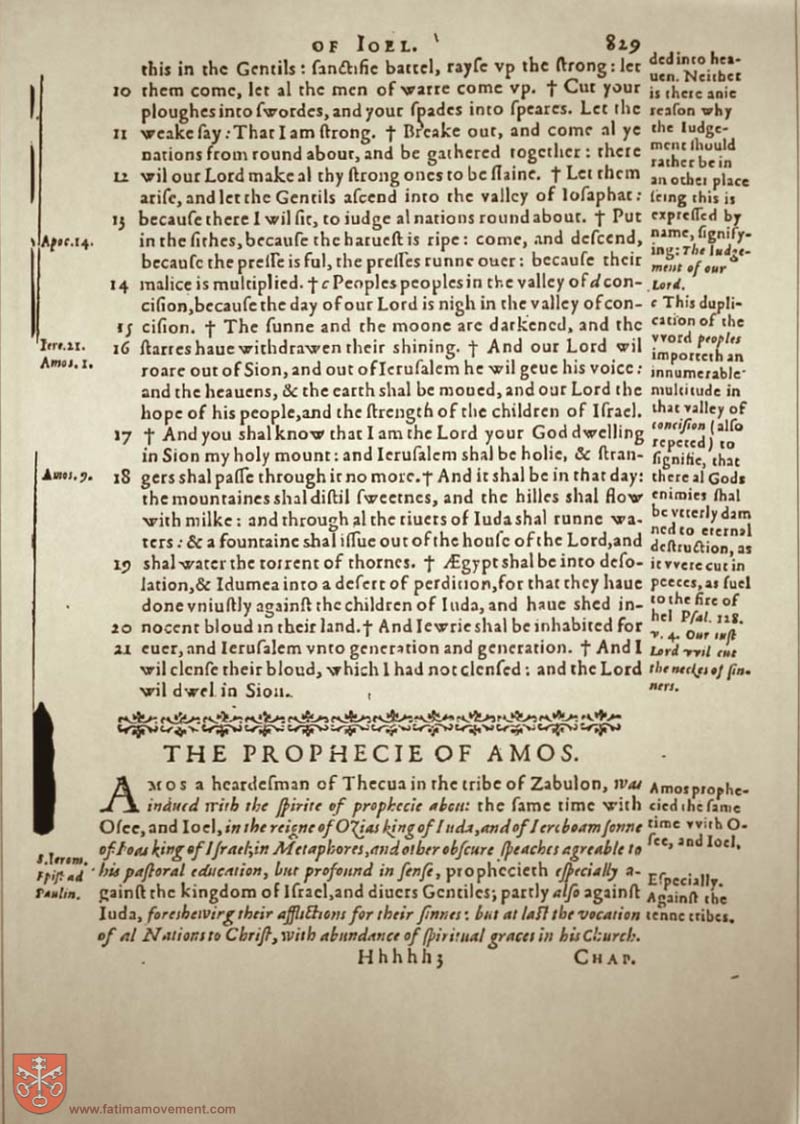 OF IOEL. 829
this in the Gentils : ſanctifie battel, rayſe vp the ſtrong : let
10 them come, let al the men of warre come vp. † Cut your
ploughes into ſwordes, and your ſpades into ſpeares. Let the
11 weake ſay : That I am ſtrong. † Breake out, and come al ye
nations from round about, and be gathered together : there
12 wil our Lord make al thy ſtrong ones to be ſlaine. † Let them
ariſe, and let the Gentils aſcend into the valley of Ioſaphat :
13 becauſe there I wil ſit, to iudge al nations round about. † Put
in the ſithes, becauſe the harueſt is ripe : come, and deſcend,
becauſe the preſſe is ful, the preſſes runne ouer : becauſe their
14 malice is multiplied. † c Peoples peoples in the valley of d con-
ciſion, becauſe the day of our Lord is nigh in the valley of con-
15 ciſion. † The ſunne and the moone are darkened, and the
16 ſtarres haue withdrawen their ſhining. † And our Lord wil
roare out of Sion, and out of Ieruſalem he wil geue his voice :
and the heauens, & the earth shal be moued, and our Lord the
hope of his people, and the ſtrength of the children of Iſrael.
17 † And you shal know that I am the Lord your God dwelling
in Sion my holy mount : and Ieruſalem shal be holie, & ſtran-
18 gers shal paſſe through it no more. † And it shal be in that day :
the mountaines shal diſtil ſweetnes, and the hilles shal flow
with milke : and through al the riuers of Iuda shal runne wa-
ters : & a fountaine shal iſſue out of the houſe of the Lord, and
19 shal water the torrent of thornes. † Ægypt shal be into deſo-
lation, & Idumea into a deſert of perdition, for that they haue
done vniuſtly againſt the children of Iuda, and haue shed in-
20 nocent bloud in their land. † And Iewrie shal be inhabited for
21 euer, and Ieruſalem vnto generation and generation. † And I
wil clenſe their bloud, which I had not clenſed : and the Lord
wil dwel in Sion.
Apoc. 14.
Iere. 21.
Amos. 1.
Amos. 9.
ded into hea-
uen. Neither
is there anie
reaſon why
the Iudge-
ment ſhould
rather be in
an other place
ſeing this is
expreſſed by
name, ſignify-
ing : The Iudge-
ment of our
Lord.
c This dupli-
cation of the
vvord peoples
importeth an
innumerable
multitude in
that valley of
conciſion (alſo
repeted) to
ſignifie, that
there al Gods
enimies ſhal
be vtterly dam
ned to eternal
deſtruction, as
it vvere cut in
peeces, as fuel
to the fire of
hel Pſal. 128.
v. 4. Our iuſt
Lord vvil cut
the neckes of ſin-
ners.
THE PROPHECIE OF AMOS.
AMOS a heardeſman of Thecua in the tribe of Zabulon, was
indued with the ſpirite of prophecie about the ſame time with
Oſee, and Ioel, in the reigne of Ozias king of Iuda, and of Ieroboam ſonne
of Ioas king of Iſrael; in Metaphores, and other obſcure ſpeaches agreable to
his paſtoral education, but profound in ſenſe, prophecieth eſpecially a-
gainſt the kingdom of Iſrael, and diuers Gentiles; partly alſo againſt
Iuda, foreshewing their afflictions for their ſinnes : but at laſt the vocation
of al Nations to Chriſt, with abundance of ſpiritual graces in his Church.
S. Ierom.
Epiſt ad
Paulin.
Amos prophe-
cied the ſame
time vvith O-
ſee, and Ioel.
Eſpecially.
Againſt the
tenne tribes.
Hhhhh3 CHAP.
www.fatimamovement.com